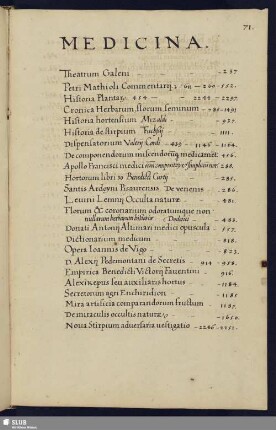 71.
MEDICINA.
Theatrum Galeni - 257.
Petri Mathioli Commentarij. 260 - 552.
Historia Plantar. 454 - 2244 - 2297.
Cronica Herbarum, florum seminum - 1491
Historia hortensium Mizaldi - 927.
Historia de stirpium Fuchsij - 1111.
Dispensatorium Valerij Cordi - 1164.
De componendorum miscendorūq medicamet. 456.
Apollo Francisci medici compositor et simplicium 288.
Hortorum libri 30 Benedicti Curty - 285.
Santis Ardeyni Pisaurensis De venenis - 286.
Leuini Lemnij Occulta naturæ - 481
Florum & coronarium odoratumque non
nullarum herbarum historie Dodonei - 482.
Donati Antonij Altimari medici opuscula - 557.
Dictionarium medicum - 818.
Opera Ioannis de Vigo - 823.
D. Alexij Pedemontani de Secretis - 914 - 958.
Empirica Benedicti Victorij Fauentini - 916.
Alexicepus seu auxiliaris hortus - 1184.
Secretorum agri Enchiridion - 1185.
Mira artificia comparandorum fructuum - 1187.
De miraculis occultis naturæ - 1650.
Noua Stirpium aduersaria uestigatio - 2246 - 2251.
SLUB